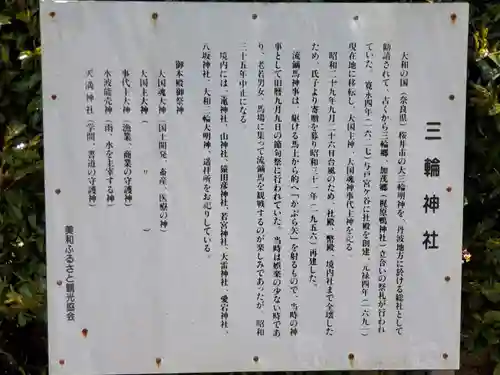 三輪神社
大和の国(奈良県)桜井市の大三輪明神を、丹波地方に於ける総社として
勧請されて、古くから三輪郷、加茂郷(梶原鴨神社)立合いの祭礼が行われ
ていた。寛永四年(一六二七)与戸宮ヶ谷に社殿を創建、元禄四年(一六九一)
現在地に移転し、大国主神、大国魂神事代主神を祀る。
昭和二十九年九月二十六日台風のため、社殿、幣殿、境内社まで全壊した
ため、氏子より寄贈を募り昭和三十一年(一九五六)再建した。
流鏑馬神事は、駆ける馬上から的へ「かぶら矢」を射るもので、当時の神
事として旧暦九月九日の節句祭に行われていた。当時は娯楽の少ない時であ
り、老若男女、馬場に集って流鏑馬を観戦するのが楽しみであったが、昭和
三十五年中止になる。
境内には、蛭神社、山神社、猿田彦神社、若宮神社、大雷神社、愛宕神社、
八坂神社、大和三輪大明神、遥拝所をお祀りしている。
御本殿御祭神
大国魂大神(国土開発、畜産、医療の神)
大国主大神(〃)
事代主大神(漁業、商業の守護神)
水波能売神(雨、水を主宰する神)
天満神社(学問、書道の守護神)
美和ふるさと観光協会